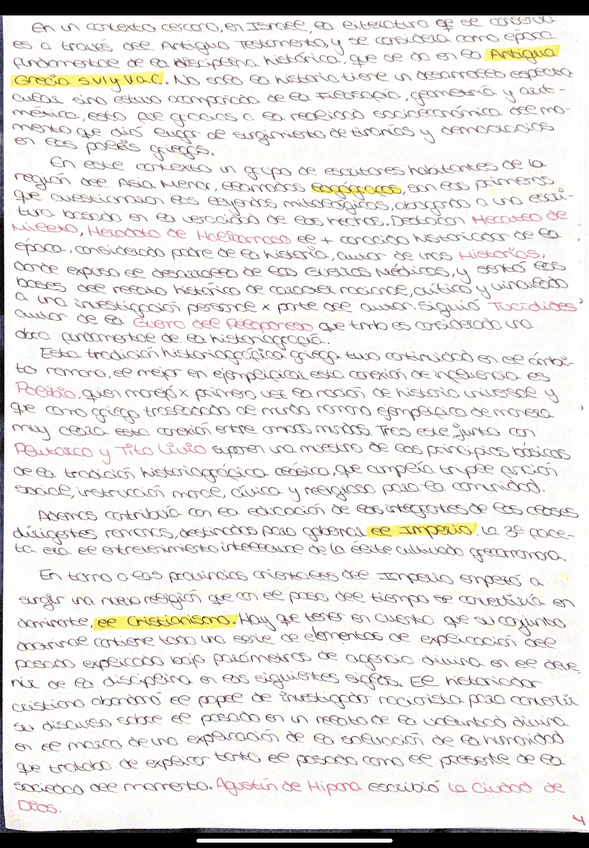 En un contexto cercano, en Israel, la literatura qe se conserva
es a través del Antiguo Testamento, y se considera como época
fundamental de la disciplina histórica, que se da en la Antigua
Grecia S.VI y V a.C. No solo la historia tiene un desarrollo especta
cular sino estuvo acompañada de la Filosofía, geometría y arit-
mética, esto fue gracias a la realidad socioeconómica del mo-
mento que dió lugar al surgimiento de tiranías y democracias
en las polis griegas.
En este contexto un grupo de escritores habitantes de la
región del Asia Menor, llamados logógrafos, son los primeros
que cuestionaron las leyendas mitológicas, abogando a una escri-
tura basada en la veracidad de los hechos. Destacan Hecateo de
Mileto, Heródoto de Halicarnaso el + conocido historiador de la
época, considerado padre de la historia, autor de unas Historias,
donde expuso el desarrollo de las Guerras Médicas, y sentó las
bases del relato histórico de carácter racional, crítico y vinculado
a una investigación personal x parte del autor. Siguió Tucídides
autor de la Guerra del Peloponeso que tmb es considerado una
obra fundamental de la historiografía.
Esta tradición historiográfica griega tuvo continuidad en el ámbi-
to romano, el mejor en ejemplificar esta conexión de influencia es
Polibio, quien manejó x primera vez la noción de historia universal y
que como griego trasladado al mundo romano ejemplifica de manera
muy clara esta conexión entre ambos mundos. Tras este, junto con
Plutarco y Tito Livio suponen una muestra de los principios básicos
de la tradición historiográfica clásica, que cumplía triple función
social, instrucción moral, cívica y religiosa para la comunidad.
Además contribuía con la educación de los integrantes de las clases
dirigentes romanas, destinados para gobernar el Imperio. La 3ª face-
ta era el entretenimiento intelectual de la élite cultivada grecorromana.
En torno a las provincias orientales del Imperio empezó a
surgir una nueva religión que con el paso del tiempo se convertiría en
dominante, el Cristianismo. Hay que tener en cuenta que su conjunto
doctrinal contiene toda una serie de elementos de explicación del
pasado explicado bajo parámetros de agencia divina en el deve-
nir de la disciplina en los siguientes siglos. El historiador
cristiano abandonó el papel de investigador racionalista para convertir
su discurso sobre el pasado en un relato de la voluntad divina
en el marco de una explicación de la salvación de la humanidad
que trataba de explicar tanto el pasado como el presente de la
sociedad del momento. Agustín de Hipona escribió La Ciudad de
Dios.
4